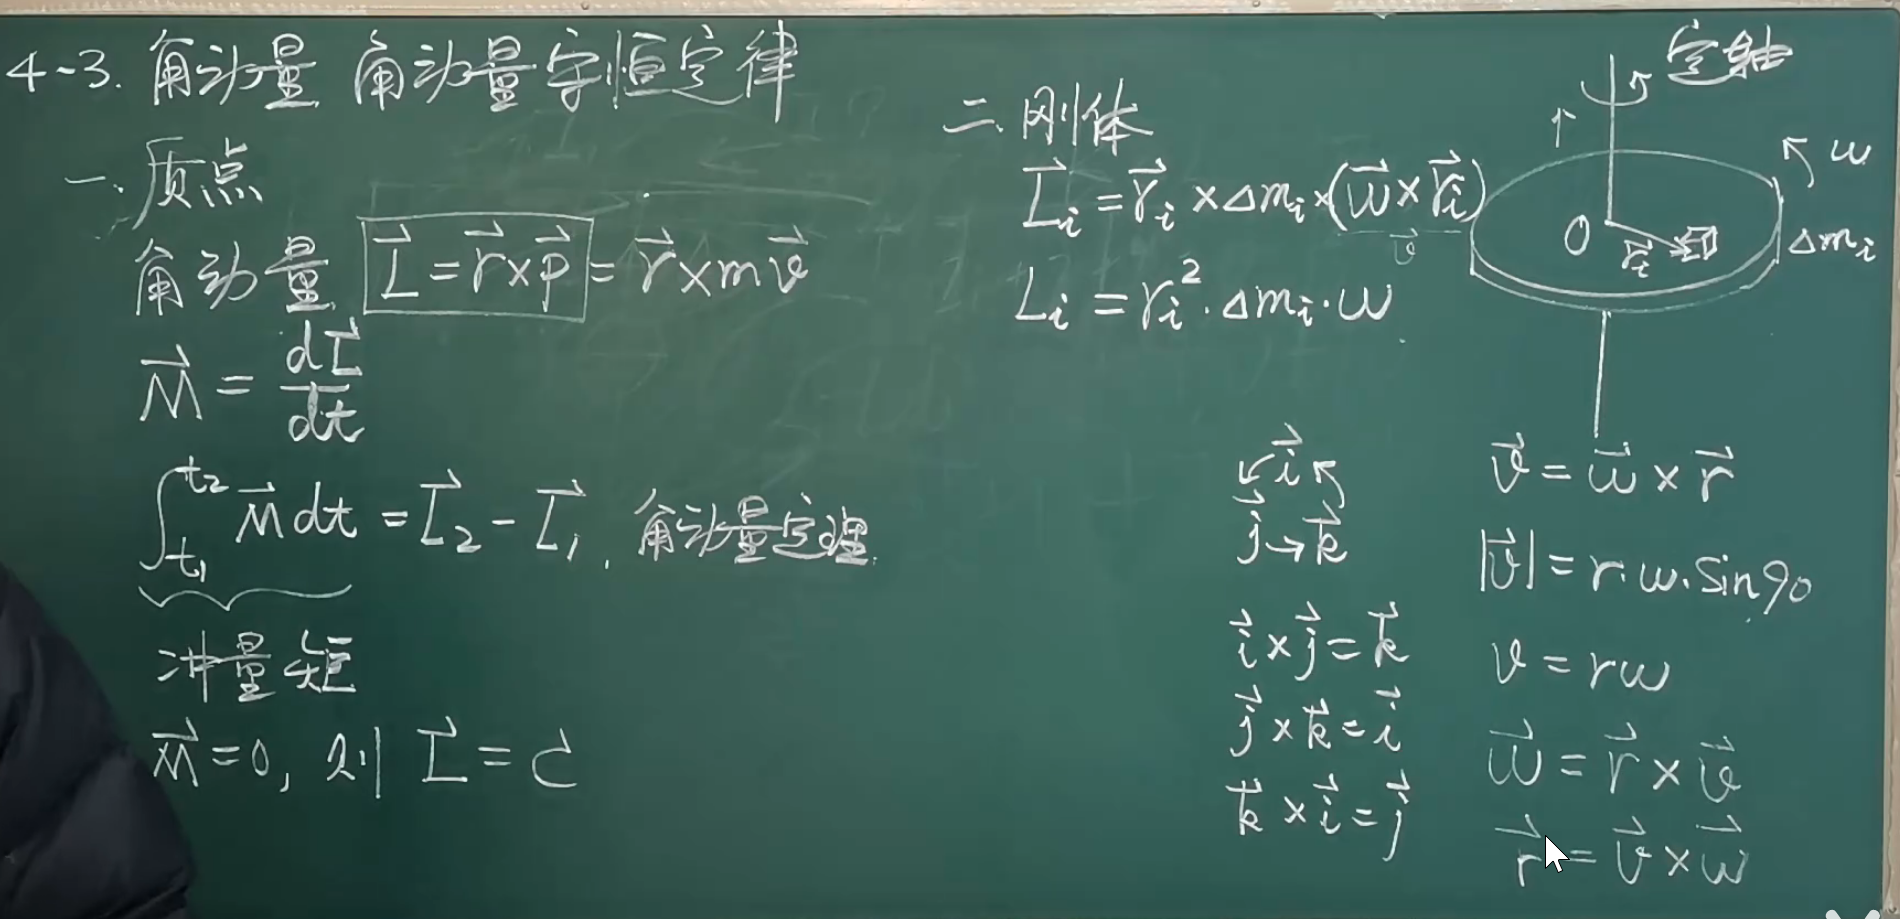 4-3. 角动量 角动量守恒定律
一. 质点
角动量 L⃗ = r⃗ × p⃗ = r⃗ × m v⃗
M⃗ = dL⃗/dt
∫_{t₁}^{t₂} M⃗ dt = L⃗₂ - L⃗₁. 角动量定理.
冲量矩
M⃗ = 0, 则 L⃗ = C⃗
二. 刚体
L⃗ᵢ = r⃗ᵢ × Δmᵢ × (ω⃗ × r⃗ᵢ)
v⃗
Lᵢ = rᵢ² · Δmᵢ · ω
定轴
ω
O
r⃗ᵢ
Δmᵢ
i⃗
j⃗ → k⃗
i⃗ × j⃗ = k⃗
j⃗ × k⃗ = i⃗
k⃗ × i⃗ = j⃗
v⃗ = ω⃗ × r⃗
|v⃗| = r · ω · sin90
v = rω
ω⃗ = r⃗ × v⃗
r⃗ = v⃗ × ω⃗